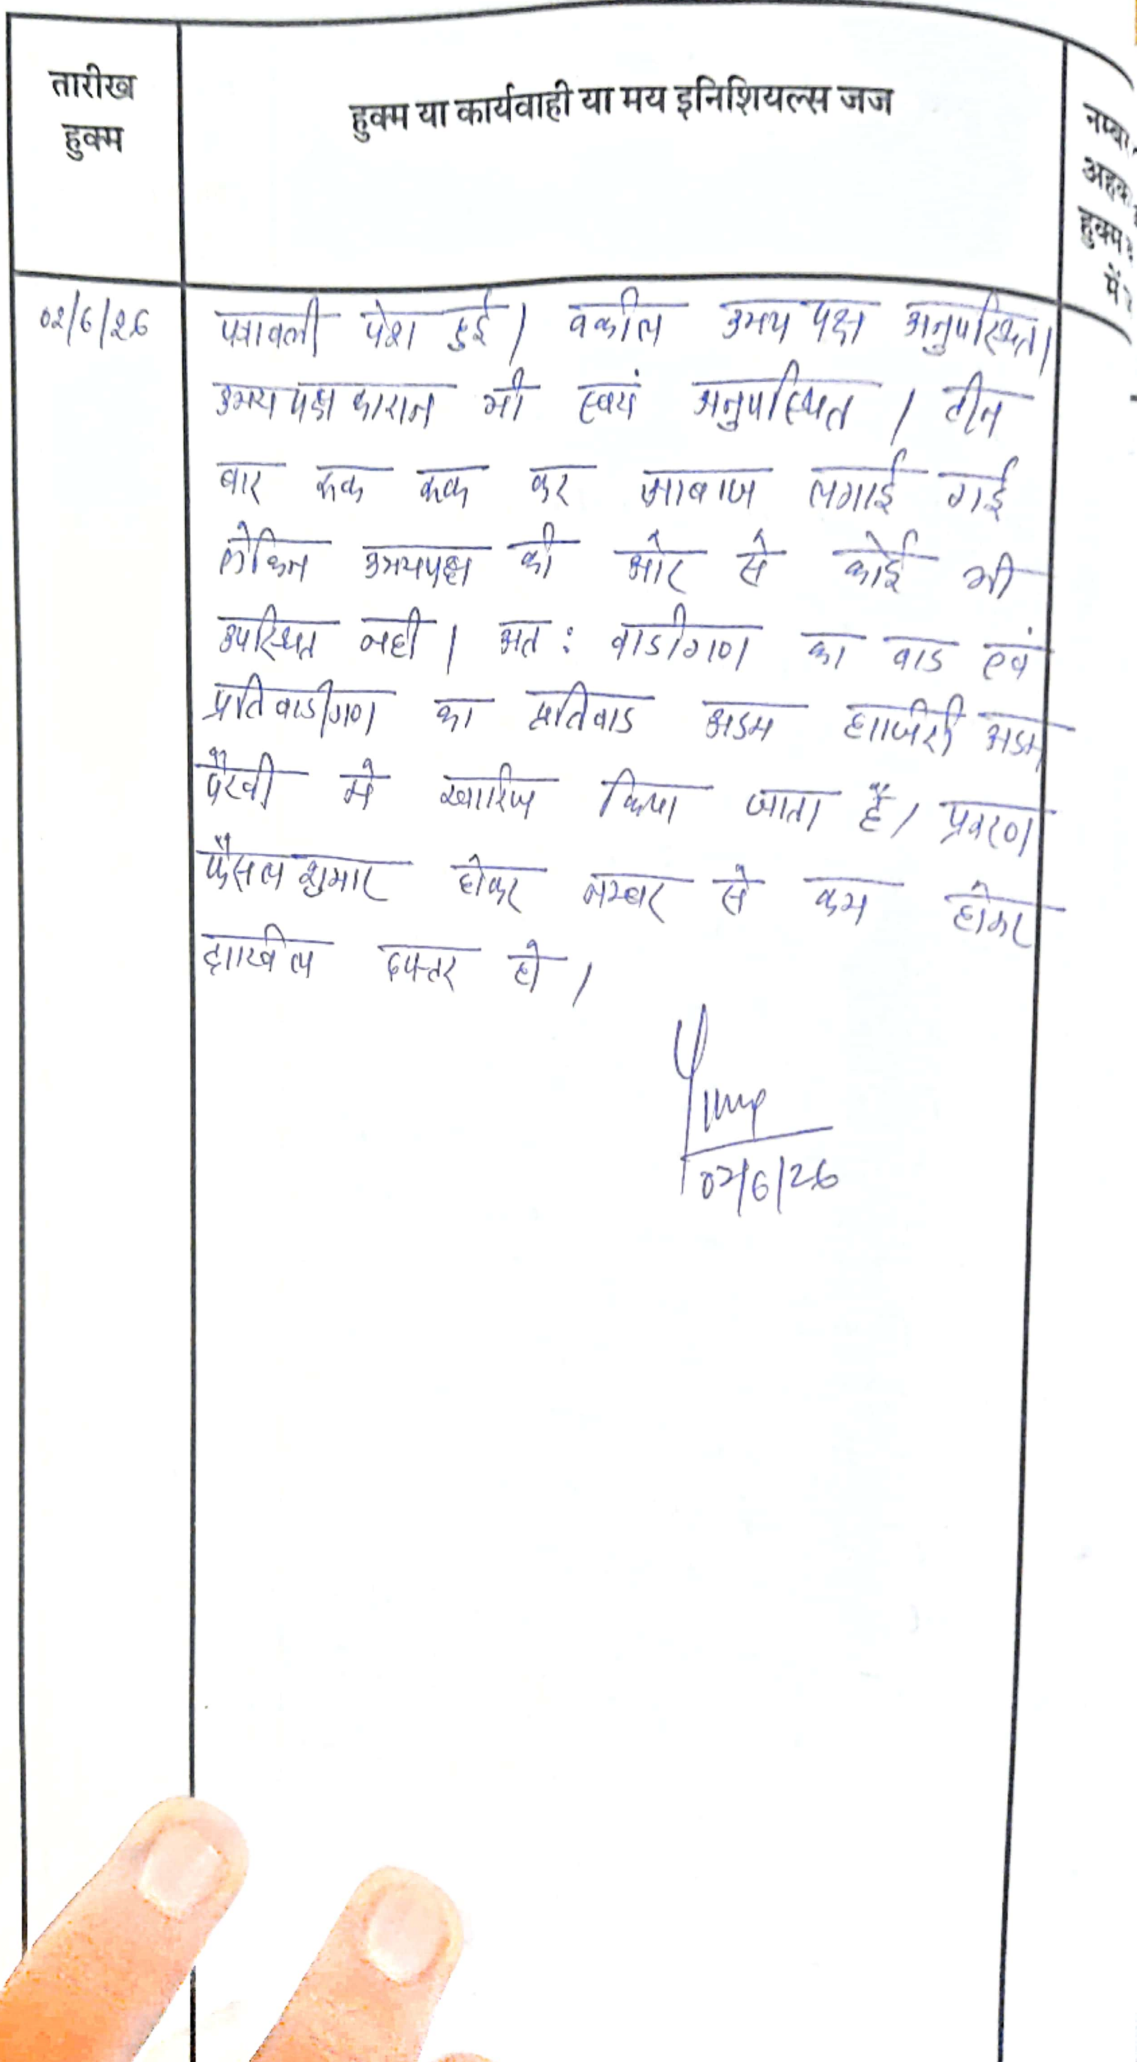 तारीख
हुक्म
हुक्म या कार्यवाही या मय इनिशियल्स जज
हुक्म
में
02/6/26
पत्रावली पेश हुई। वकील उभय पक्ष अनुपस्थित।
उभय पक्षकारान भी स्वयं अनुपस्थित। तीन
बार रूक रूक कर आवाज लगाई गई
लेकिन उभयपक्ष की ओर से कोई भी
उपस्थित नही। अत: वादीगण का वाद एवं
प्रतिवादीगण का प्रतिवाद अदम हाजिरी अदम
पैरवी मे खारिज किया जाता है। प्रकरण
फैसल शुमार होकर नम्बर से कम होकर
दाखील दफ्तर हो।
02/6/26